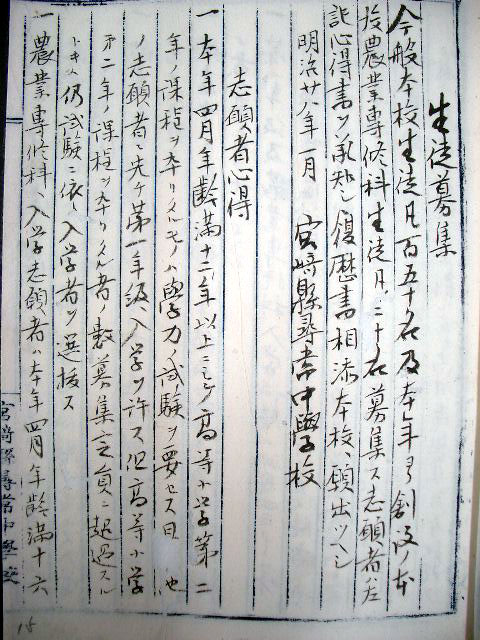 生徒募集
今般本校生徒凡百五十名及本年ヨリ創設ノ本
校農業専修科生徒凡二十名募集ス志願者ハ左
記心得書ヲ承知シ履歴書相添本校ヘ願出ツヘシ
明治廿八年一月 宮崎縣尋常中學校
志願者心得
一本年四月年齢満十二年以上ニシテ高等小学第二
年ノ課程ヲ卒リタルモノハ學力ノ試験ヲ要セス
ノ志願者ハ先ツ第一年級ヘ入学ヲ許ス但高等小学
第二年ノ課程ヲ卒リタル者ノ数募集定員ニ超過スル
トキハ仍試験ニ依リ入学者ヲ選抜ス
一農業専修科ヘ入学志願者ハ本年四月年齢満十六
宮崎縣尋常中學校
15